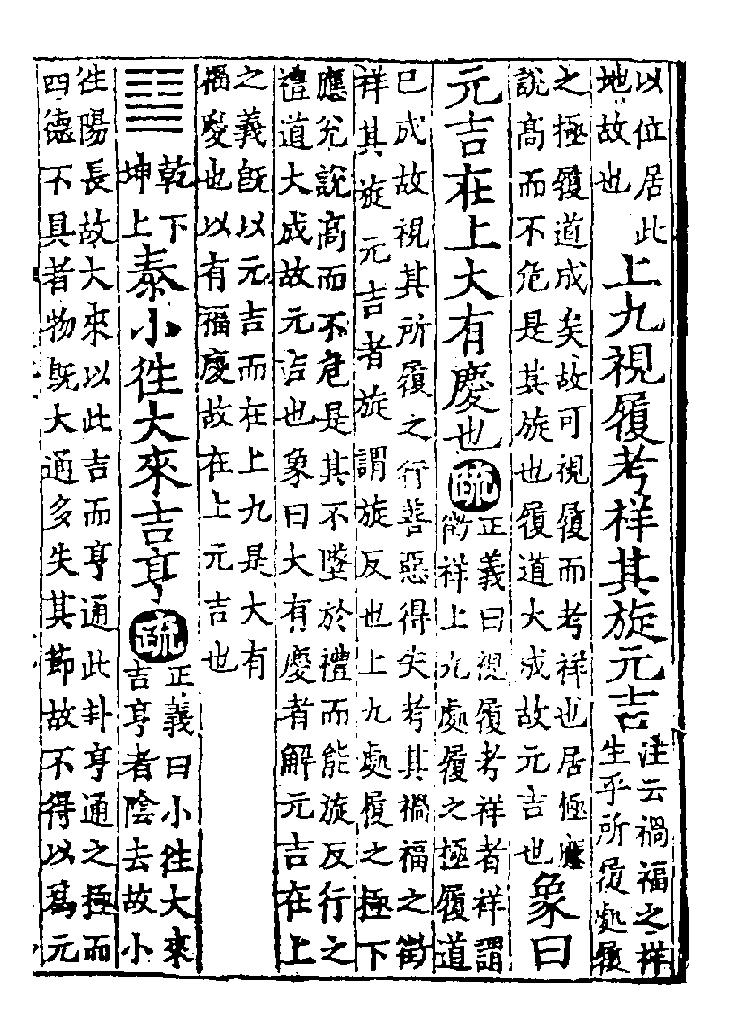 以位居此
地故也
上九視履考祥其旋元吉
注云禍福之祥
生乎所履處履
之極履道成矣故可視履而考祥也居極應
說高而不危是其旋也履道大成故元吉也
象曰
元吉在上大有慶也
疏
正義曰視履考祥者祥謂
徵祥上九處履之極履道
已成故視其所履之行善惡得失考其禍福之徵
祥其旋元吉者旋謂旋反也上九處履之極下
應兌說高而不危是其不墜於禮而能旋反行之
禮道大成故元吉也象曰大有慶者解元吉在上
之義旣以元吉而在上九是大有
福慶也以有福慶故在上元吉也
䷊
乾下
坤上
泰小往大來吉亨
疏
正義曰小往大來
吉亨者陰去故小
往陽長故大來以此吉而亨通此卦亨通之極而
四德不具者物旣大通多失其節故不得以爲元